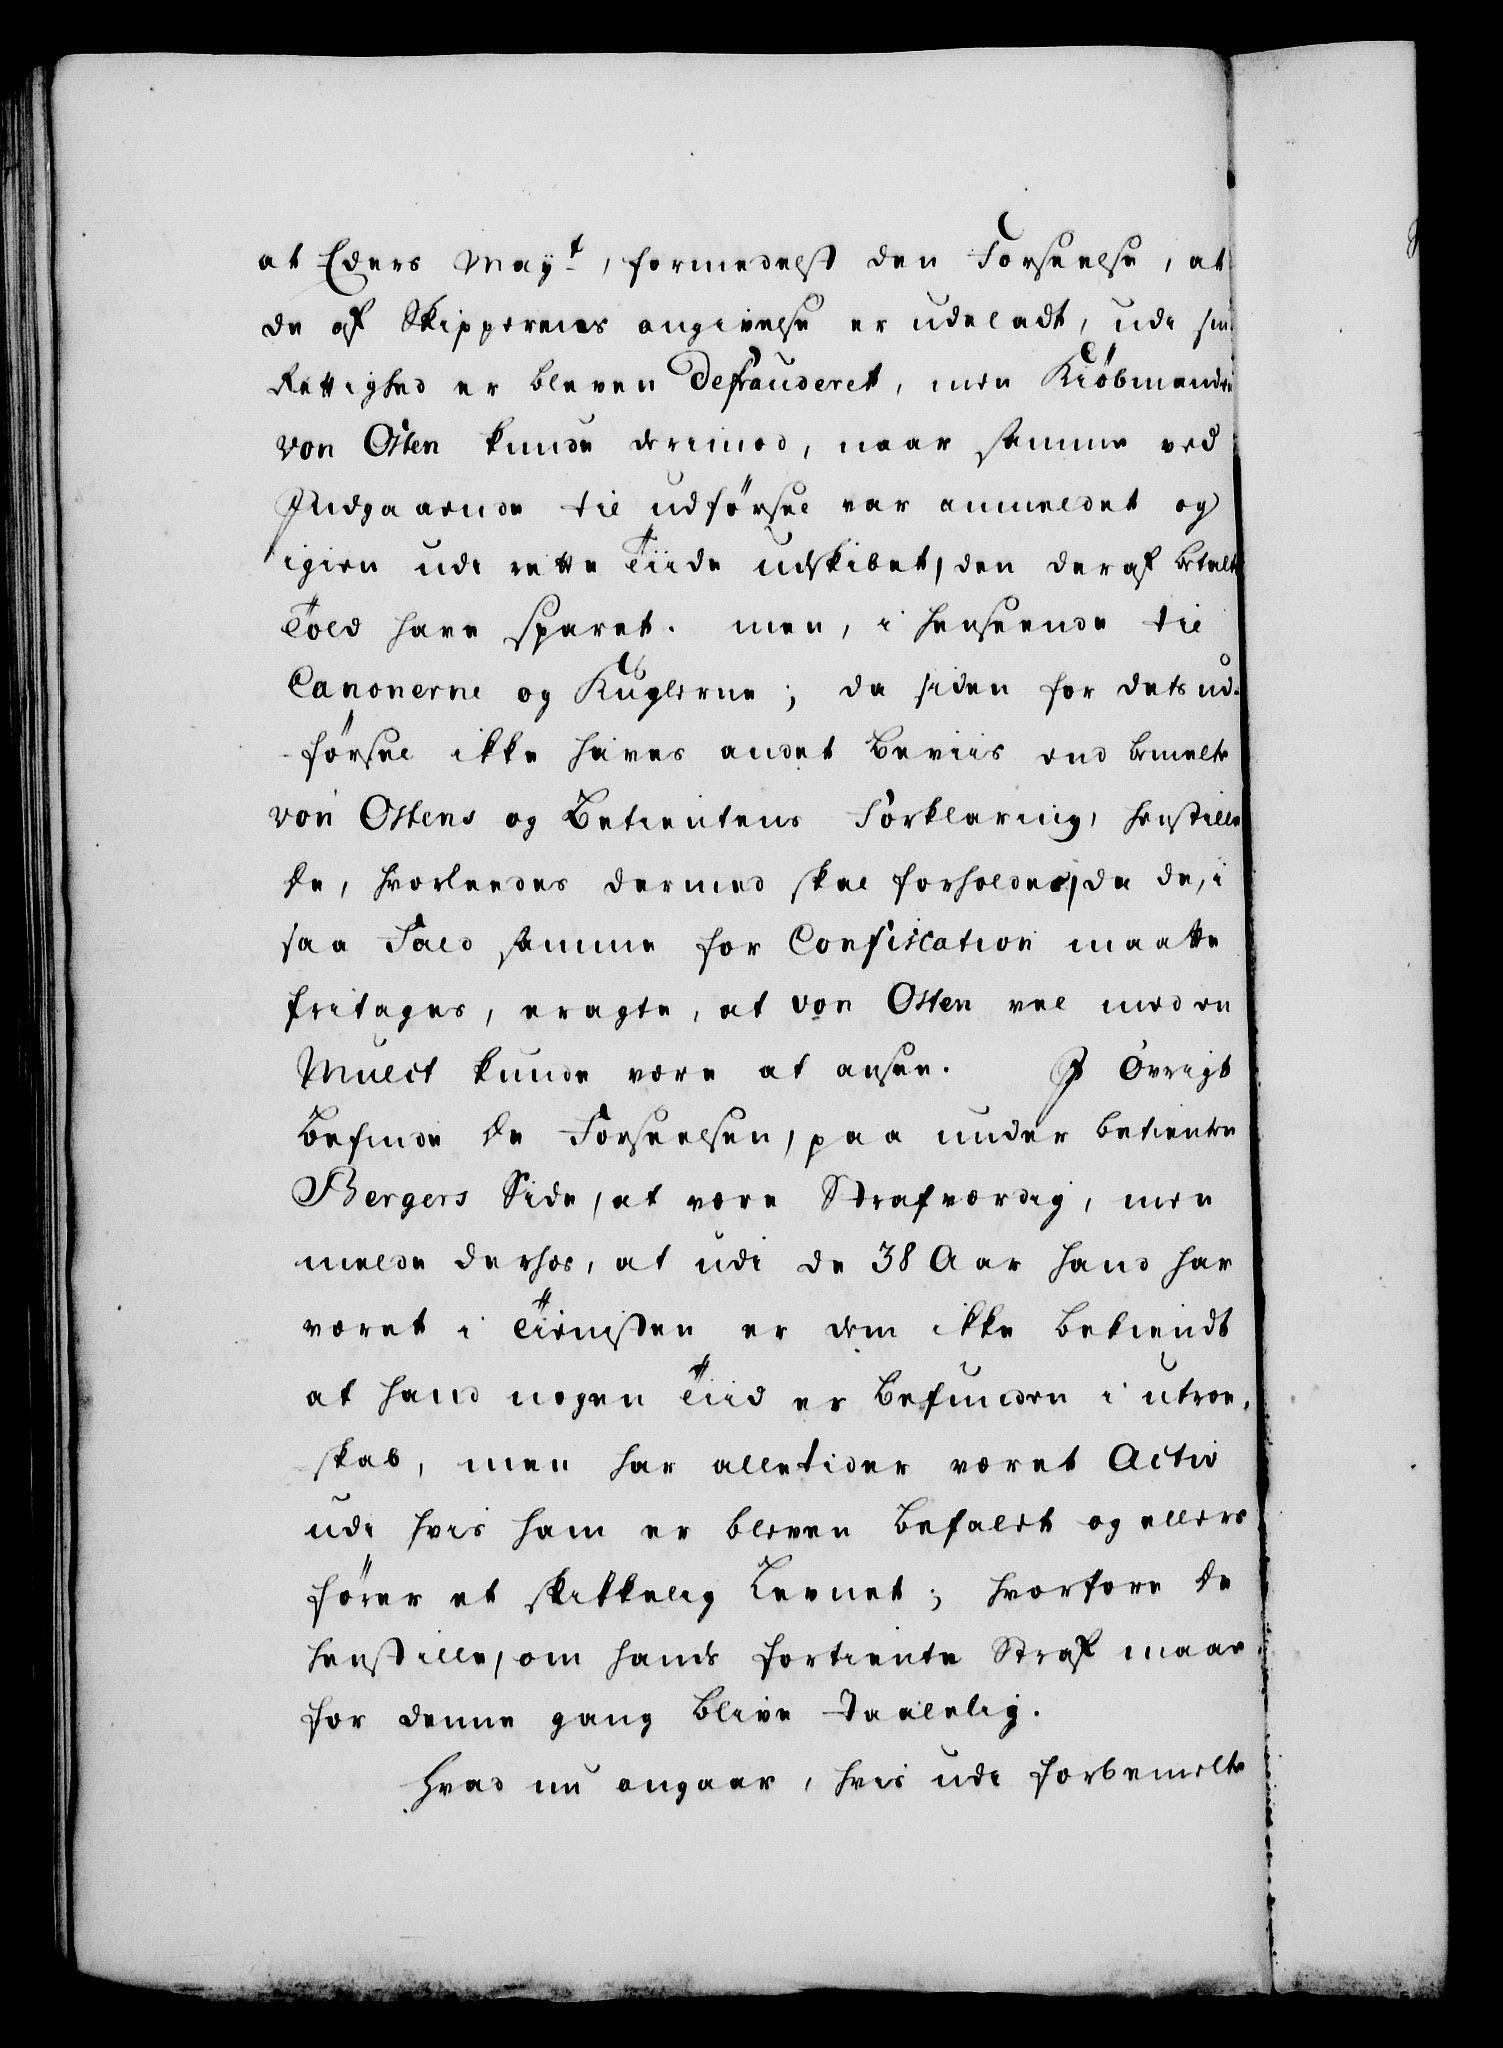 at Eders Mayt, formedelst den Forseelse, at
de af Skippernes angivelse er udeladt, udi sin
Rettighed er bleven Defrauderet, men Kiöbmanden
von Osten kunde derimod, naar samme ved
Indgaaende til udførsel var anmeldet og
igien udi rette Tiide udskibet, den deraf betalte
Told have sparet. men, i henseende til
Canonerne og Kuglerne; da siden for dets ud-
førsel ikke haves andet Beviis end bemelte
von Ostens og Betientens Forklaring, henstille
de, hvorleedes dermed skal forholdes, da de, i
saa Fald samme for Confiscation maatte
fritages, eragte, at von Osten vel med en
Mulct kunde være at ansee. I Övrigt
Befinde de Forseelsen, paa under betiente
Bergers Side, at være Strafværdig, men
melde derhos, at udi de 38 Aar hand har
været i Tienisten er dem ikke bekiendt
at hand nogen Tiid er befunden i utroe-
skab, men har alletider været Activ
udi hvis ham er bleven befalet og ellers
fører et skikkelig Levnet; hvorfore de
henstille, om hands fortiente Straf maae
for denne gang blive taalelig.
Hvad nu angaar, hvis udi forbemelte